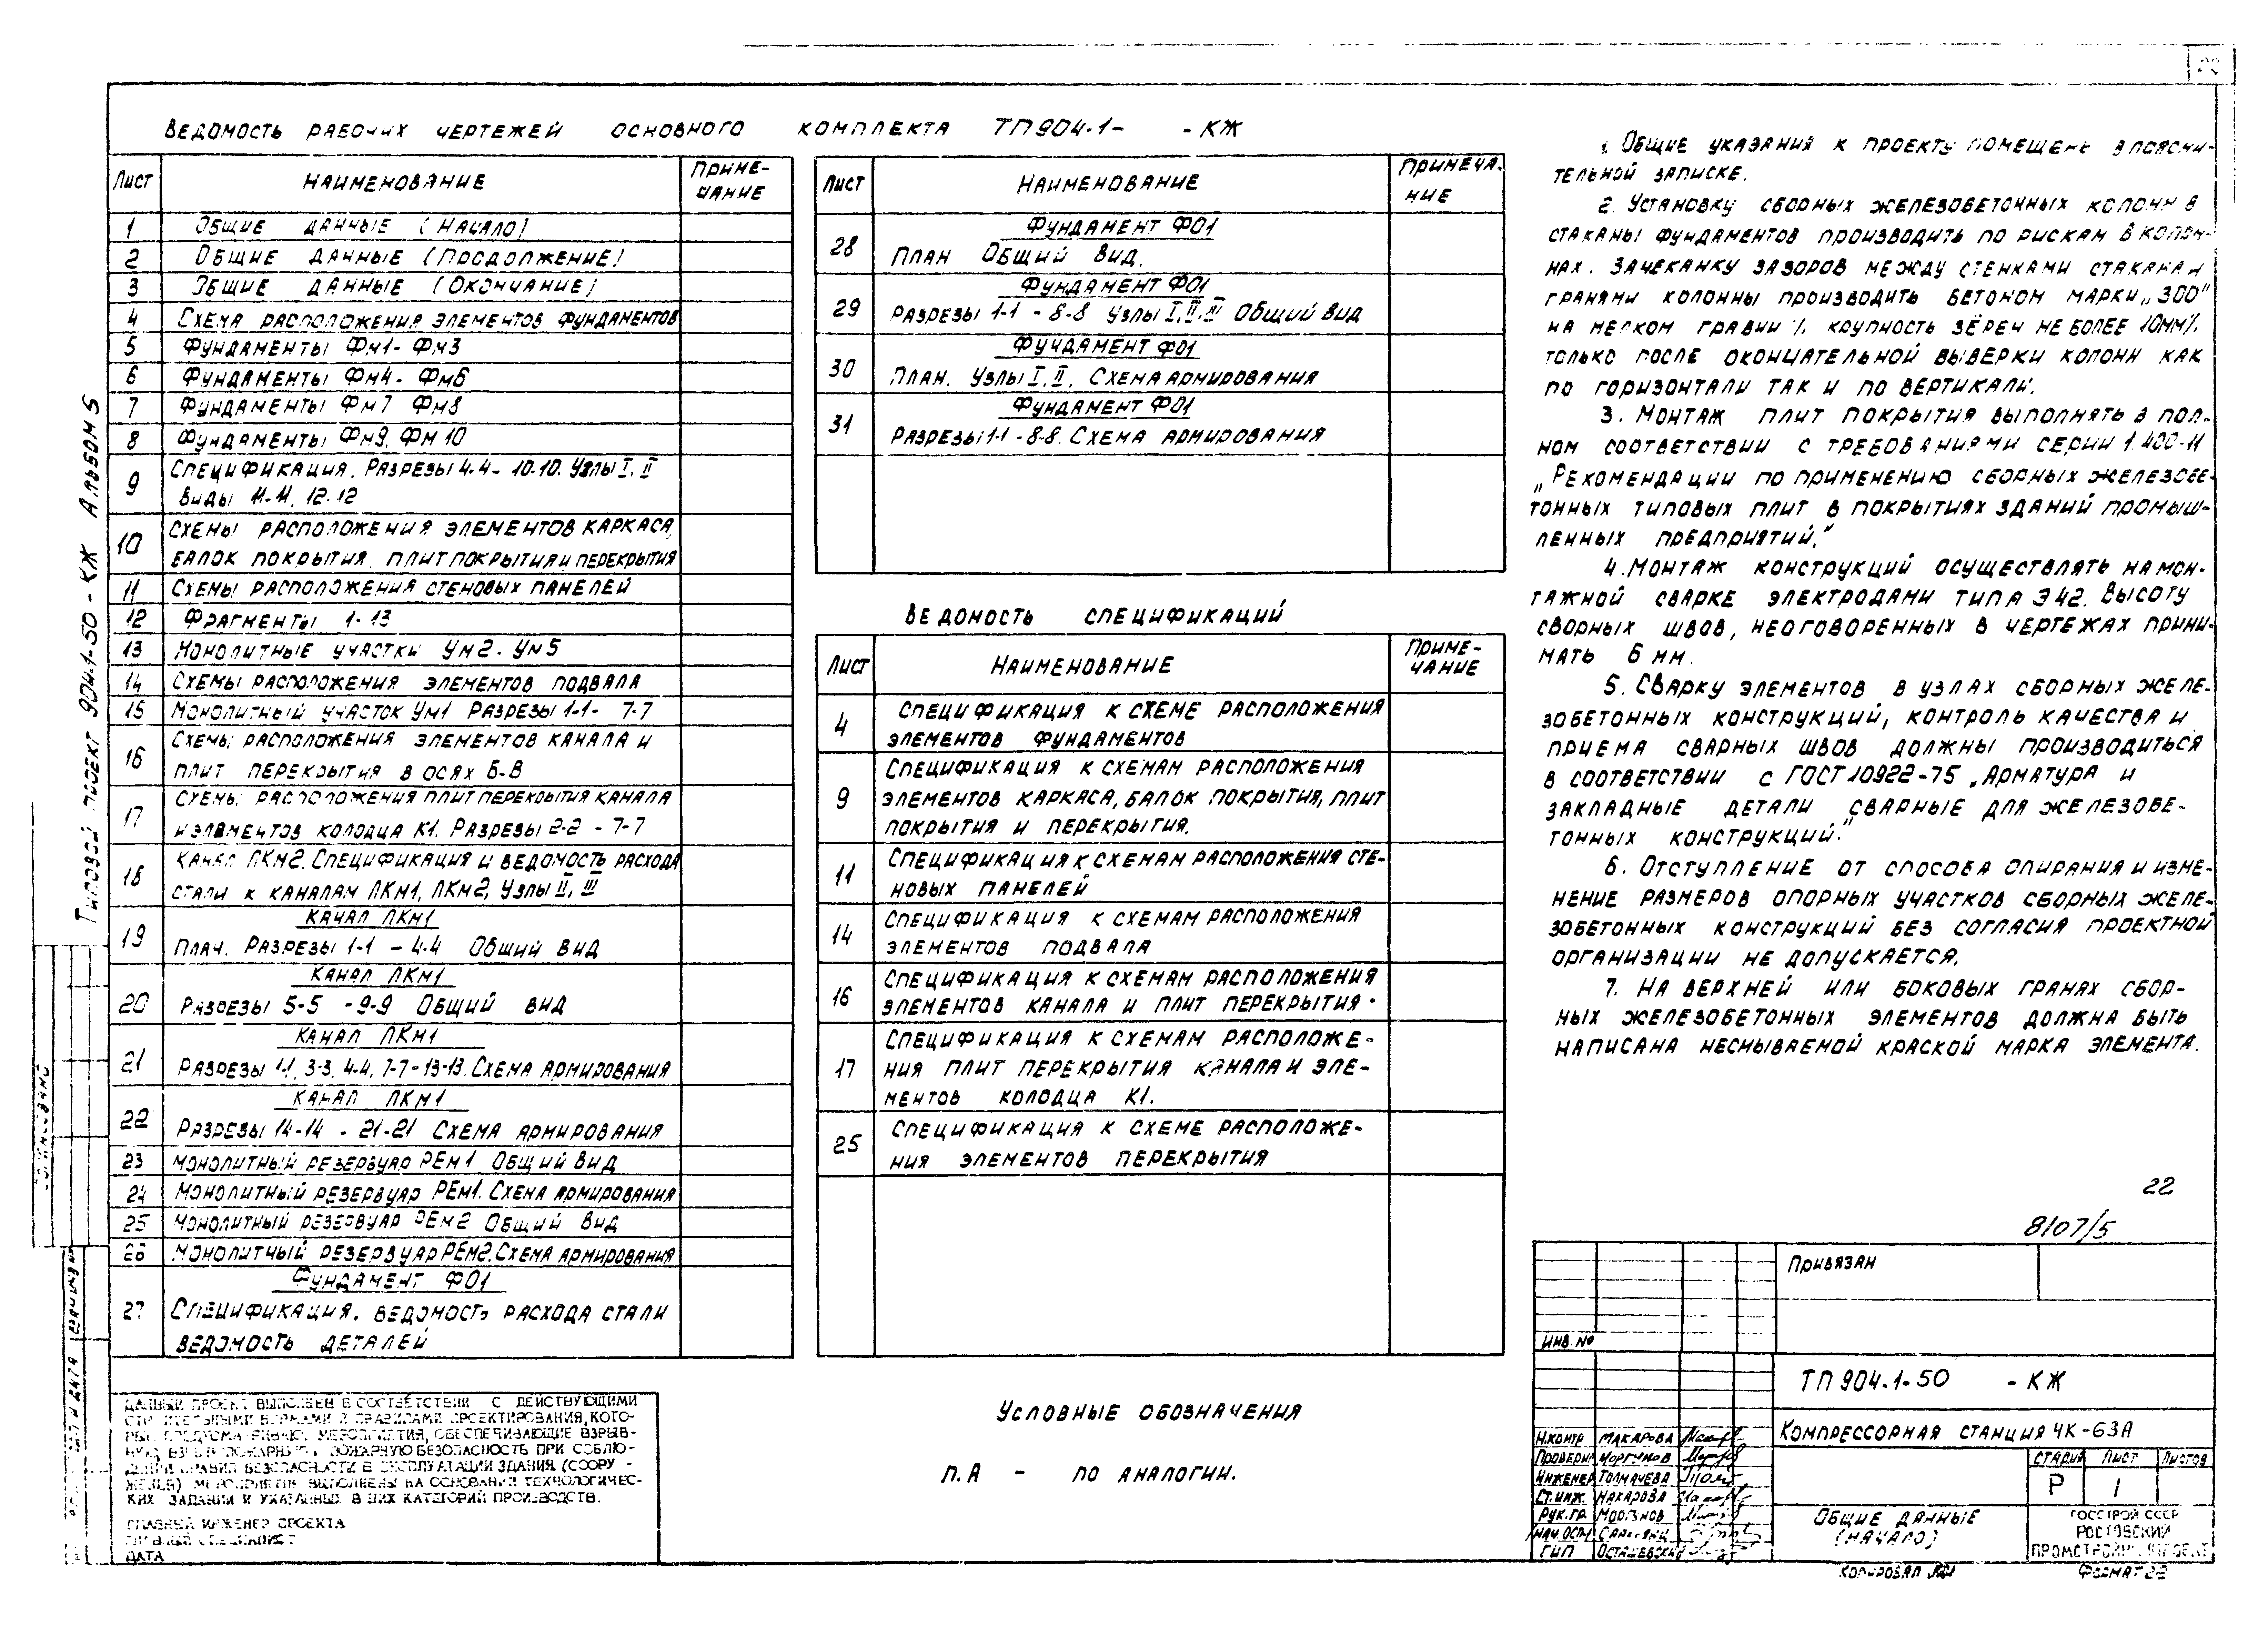 Типовой проект 904-1-50-КЖ Альбом 5
Ведомость рабочих чертежей основного комплекта ТП904-1- -КЖ
Лист Наименование Приме-
чание
1 Общие данные (Начало)
2 Общие данные (Продолжение)
3 Общие данные (Окончание)
4 Схема расположения элементов фундаментов
5 Фундаменты Фм1- Фм3
6 Фундаменты Фм4- Фм6
7 Фундаменты Фм7 Фм8
8 Фундаменты Фм9, Фм10
9 Спецификация. Разрезы 4-4- 10-10. Узлы I, II
Виды 11-11, 12-12
10 Схемы расположения элементов каркаса,
балок покрытия, плит покрытия и перекрытия
11 Схемы расположения стеновых панелей
12 Фрагменты 1-13
13 Монолитные участки Ум2- Ум5
14 Схемы расположения элементов подвала
15 Монолитный участок Ум1 Разрезы 1-1- 7-7
16 Схемы расположения элементов канала и
плит перекрытия в осях Б-В
17 Схемы расположения плит перекрытия канала
и элементов колодца К1. Разрезы 2-2 - 7-7
18 Канал ЛКм2. Спецификация и ведомость расхода
стали к каналам ЛКм1, ЛКм2, Узлы II, III
19 Канал ЛКм1
План. Разрезы 1-1 - 4-4 Общий вид
20 Канал ЛКм1
Разрезы 5-5 - 9-9 Общий вид
21 Канал ЛКм1
Разрезы 1-1, 3-3, 4-4, 7-7-13-13. Схема армирования
22 Канал ЛКм1
Разрезы 14-14 - 21-21 Схема армирования
23 Монолитный резервуар РЕм1 Общий вид
24 Монолитный резервуар РЕм1. Схема армирования
25 Монолитный резервуар РЕм2 Общий вид
26 Монолитный резервуар РЕм2. Схема армирования
27 Фундамент ФО1
Спецификация. Ведомость расхода стали
Ведомость деталей
Лист Наименование Примеча.
ние
28 Фундамент ФО1
План Общий вид.
29 Фундамент ФО1
Разрезы 1-1 - 8-8 Узлы I, II, III Общий вид
30 Фундамент ФО1
План. Узлы I, II. Схема армирования
31 Фундамент ФО1
Разрезы 1-1 - 8-8. Схема армирования
Ведомость спецификаций
Лист Наименование Приме-
чание
4 Спецификация к схеме расположения
элементов фундаментов
9 Спецификация к схемам расположения
элементов каркаса, балок покрытия, плит
покрытия и перекрытия.
11 Спецификация к схемам расположения сте-
новых панелей
14 Спецификация к схемам расположения
элементов подвала
16 Спецификация к схемам расположения
элементов канала и плит перекрытия.
17 Спецификация к схемам расположе-
ния плит перекрытия канала и эле-
ментов колодца К1.
25 Спецификация к схеме расположе-
ния элементов перекрытия
1. Общие указания к проекту помещены в поясни-
тельной записке.
2. Установку сборных железобетонных колонн в
стаканы фундаментов производить по рискам в колон-
нах. Зачеканку зазоров между стенками стакана и
гранями колонны производить бетоном марки „300"
на мелком гравии /крупность зёрен не более 10мм/,
только после окончательной выверки колонн как
по горизонтали так и по вертикали.
3. Монтаж плит покрытия выполнять в пол-
ном соответствии с требованиями серии 1.400-11
„Рекомендации по применению сборных железобе-
тонных типовых плит в покрытиях зданий промыш-
ленных предприятий."
4. Монтаж конструкций осуществлять на мон-
тажной сварке электродами типа Э42. Высоту
сворных швов, неоговоренных в чертежах прини-
мать 6 мм.
5. Сварку элементов в узлах сборных желе-
зобетонных конструкций, контроль качества и
приема сварных швов должны производиться
в соответствии с ГОСТ 10922-75 „Арматура и
закладные детали сварные для железобе-
тонных конструкций."
6. Отступление от способа опирания и изме-
нение размеров опорных участков сборных желе-
зобетонных конструкций без согласия проектной
организации не допускается.
7. На верхней или боковых гранях сбор-
ных железобетонных элементов должна быть
написана несмываемой краской марка элемента.
22
8107/5
Данный проект выполнен в соответствии с действующими
строительными нормами и правилами проектирования, кото-
рые предусматривают мероприятия, обеспечивающие взрыв-
ную, взрывопожарную и пожарную безопасность при соблю-
дении правил безопасности в эксплуатации здания (соору-
жения) мероприятия выполнены на основании технологичес-
ких заданий и указанных в них категорий производств.
Главный инженер проекта
Главный специалист
Дата
Условные обозначения
п.А - по аналогии.
Привязан
Инв. №
ТП 904-1-50 -КЖ
Компрессорная станция 4К-63А
Н.контр Макарова
Проверил Моргунов
Инженер Толмачева
Ст.инж. Макарова
Рук.гр. Моргунов
Нач.осп
ГИП Осташевский
Стадия Лист Листов
Р 1
Общие данные
(начало)
Госстрой СССР
Ростовский
Промстройниипроект
Копировал
Формат 22